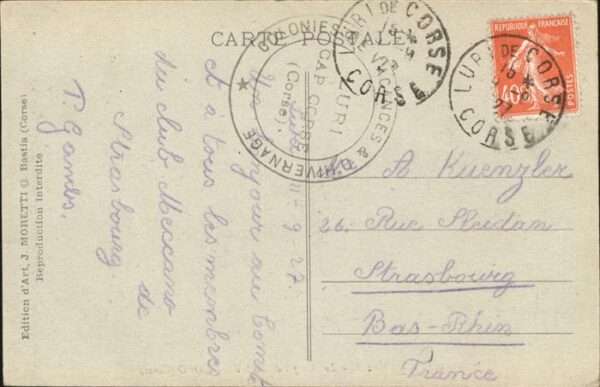 CARTE POSTALE
RÉPUBLIQUE FRANÇAISE
40c
POSTES
LURI DE CORSE
CORSE
LURI DE CORSE
CORSE
COLONIES DE VACANCES & D'HIVERNAGE
LURI
CAP CORSE
(Corse)
Luri 11-9-27.
Un bonjour au Comité
et à tous les membres
du club Meccano
de
Strasbourg
P. Gambs.
A Kuenzler
26. Rue Sleidan
Strasbourg
Bas-Rhin
France
Edition d'Art, J. MORETTI Q. Bastia (Corse)
Reproduction interdite